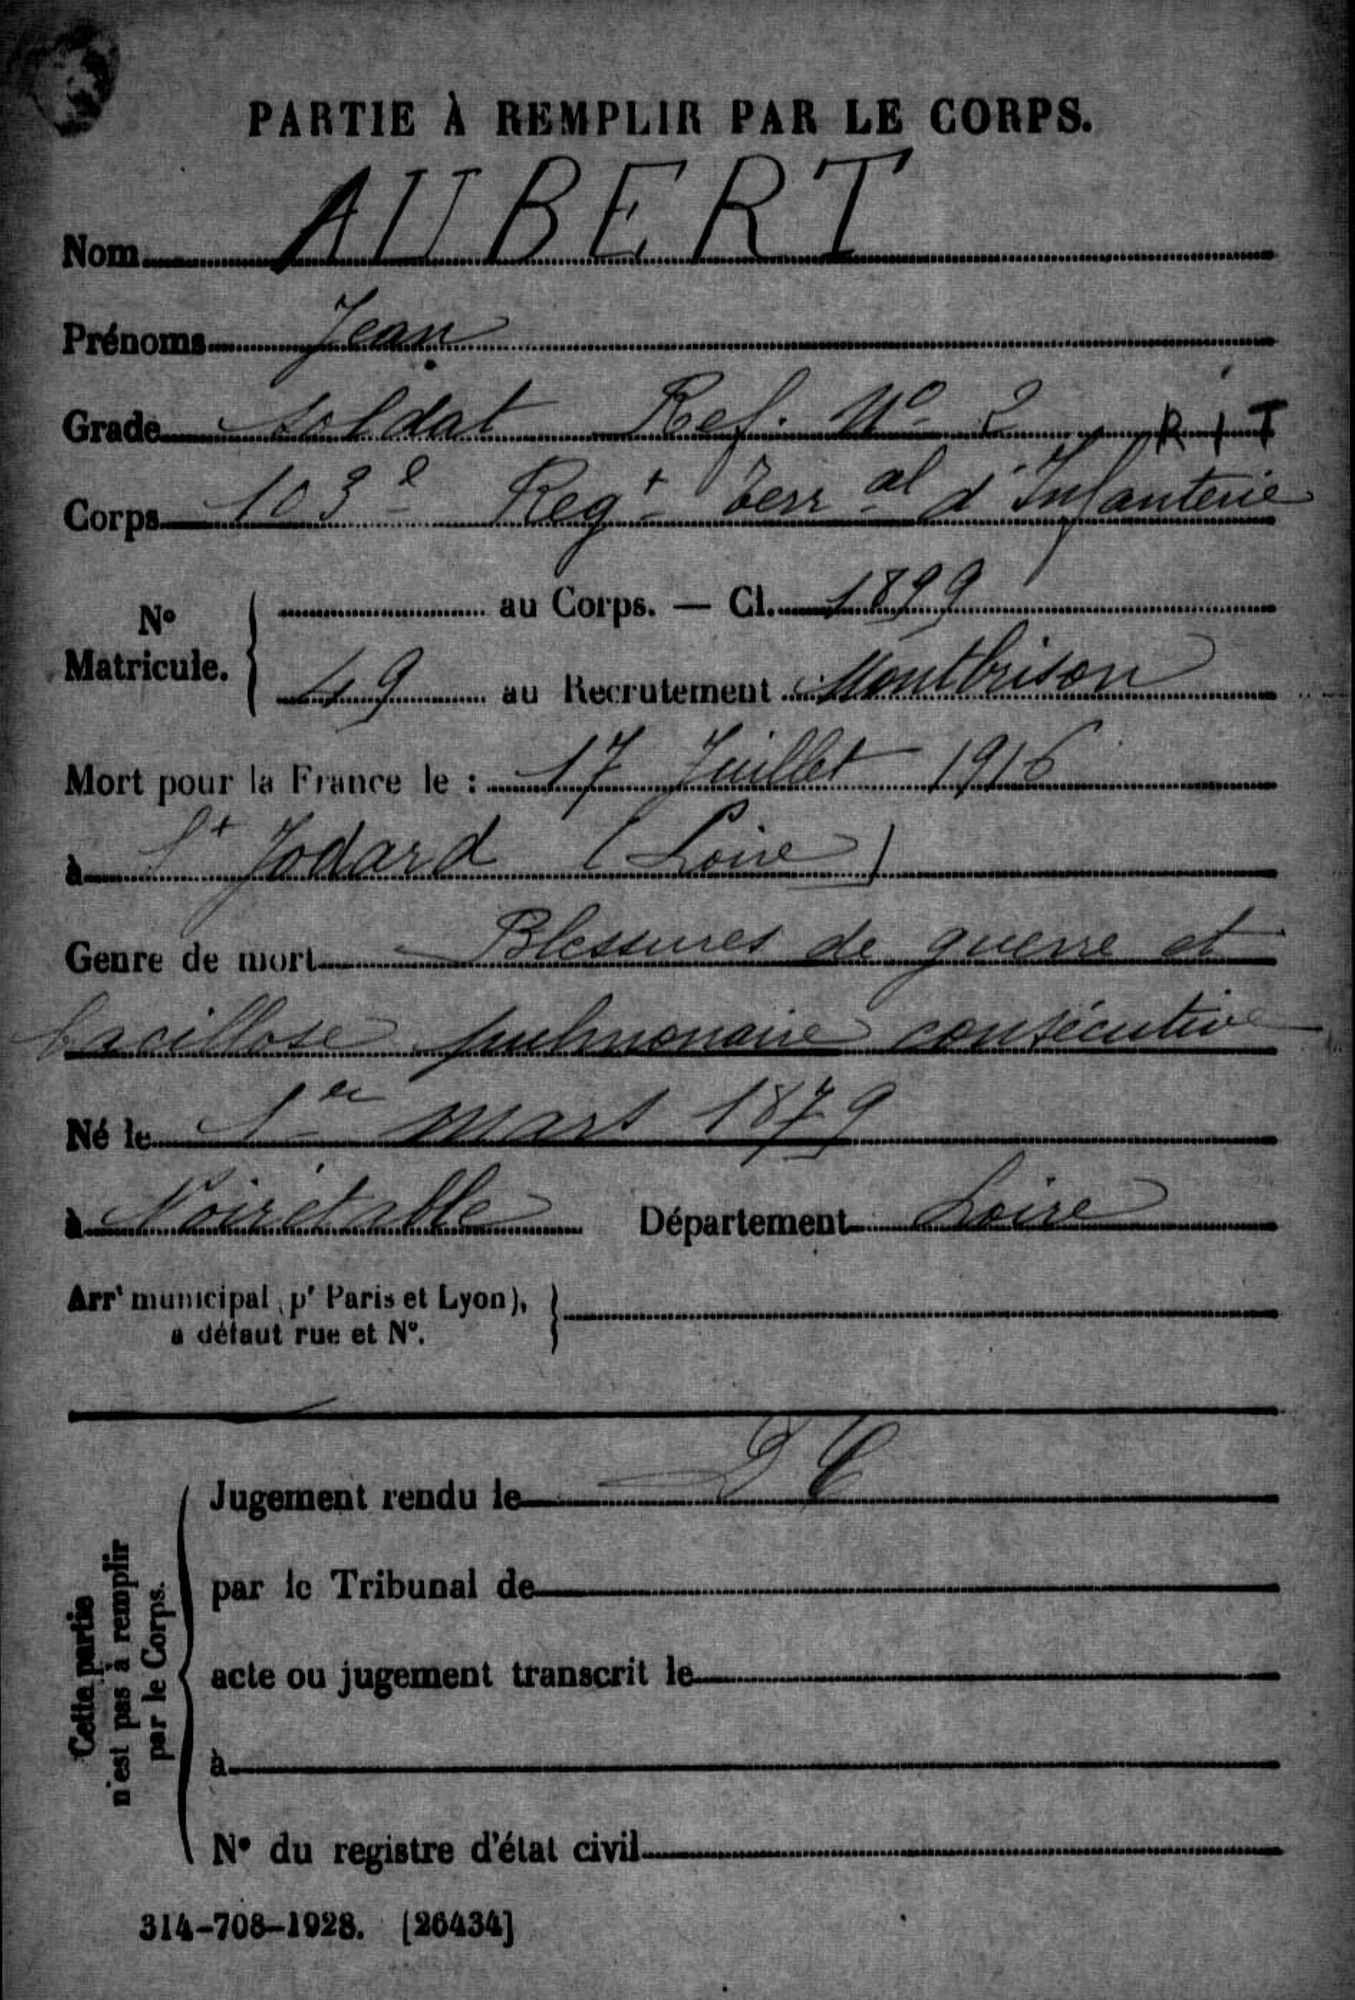 PARTIE À REMPLIR PAR LE CORPS.
Nom AUBERT
Prénoms Jean
Grade soldat Ref. No 2 R I T
Corps 103e Regt Terral d'Infanterie
No Matricule. au Corps. — Cl. 1899
49 au Recrutement Montbrison
Mort pour la France le : 17 Juillet 1916
à St Jodard (Loire)
Genre de mort Blessures de guerre et
bacillose pulmonaire consécutive
Né le 1er mars 1879
à Noirétable Département Loire
Arrt municipal (pr Paris et Lyon),
à défaut rue et No.
Jugement rendu le
par le Tribunal de
acte ou jugement transcrit le
à
No du registre d'état civil
Cette partie
n'est pas à remplir
par le Corps.
314-708-1928. [26434]